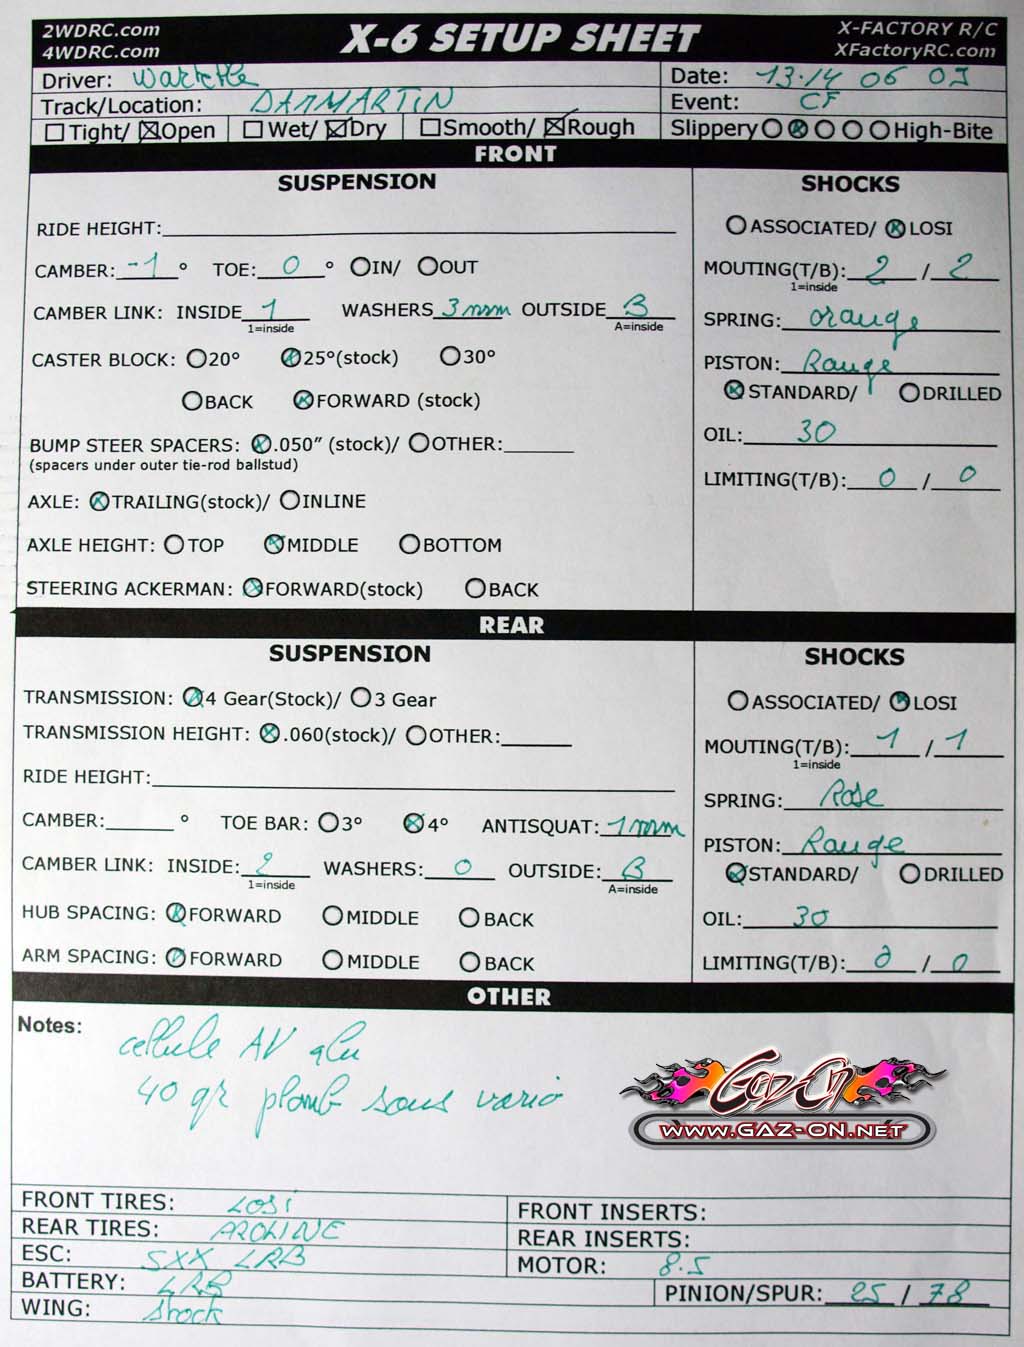 2WDRC.com
4WDRC.com
X-6 SETUP SHEET
X-FACTORY R/C
XFactoryRC.com
Driver:
Date: 13.14 06 09
Track/Location: DAMMARTIN
Event: CF
Tight/ Open Wet/ Dry Smooth/ Rough Slippery High-Bite
FRONT
SUSPENSION
RIDE HEIGHT:
CAMBER: -1 ° TOE: 0 ° IN/ OUT
CAMBER LINK: INSIDE 1 WASHERS 3mm OUTSIDE B
1=inside A=inside
CASTER BLOCK: 20° 25°(stock) 30°
BACK FORWARD (stock)
BUMP STEER SPACERS: .050” (stock)/ OTHER:
(spacers under outer tie-rod ballstud)
AXLE: TRAILING(stock)/ INLINE
AXLE HEIGHT: TOP MIDDLE BOTTOM
STEERING ACKERMAN: FORWARD(stock) BACK
SHOCKS
ASSOCIATED/ LOSI
MOUTING(T/B): 2 / 2
1=inside
SPRING: orange
PISTON: Rouge
STANDARD/ DRILLED
OIL: 30
LIMITING(T/B): 0 / 0
REAR
SUSPENSION
TRANSMISSION: 4 Gear(Stock)/ 3 Gear
TRANSMISSION HEIGHT: .060(stock)/ OTHER:
RIDE HEIGHT:
CAMBER: ° TOE BAR: 3° 4° ANTISQUAT: 1mm
CAMBER LINK: INSIDE: 2 WASHERS: 0 OUTSIDE: B
1=inside A=inside
HUB SPACING: FORWARD MIDDLE BACK
ARM SPACING: FORWARD MIDDLE BACK
SHOCKS
ASSOCIATED/ LOSI
MOUTING(T/B): 1 / 1
1=inside
SPRING: Rose
PISTON: Rouge
STANDARD/ DRILLED
OIL: 30
LIMITING(T/B): 0 / 0
OTHER
Notes:
cellule AV alu
40 gr plomb sous vario
GAZ-ON
WWW.GAZ-ON.NET
FRONT TIRES: LOSI
REAR TIRES: PROLINE
ESC: SXX LRB
BATTERY: LRB
WING: stock
FRONT INSERTS:
REAR INSERTS:
MOTOR: 8.5
PINION/SPUR: 25 / 78